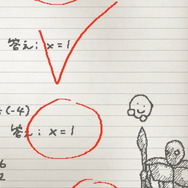 答え: x = 1
(-4)
答え: x = 1
6
2